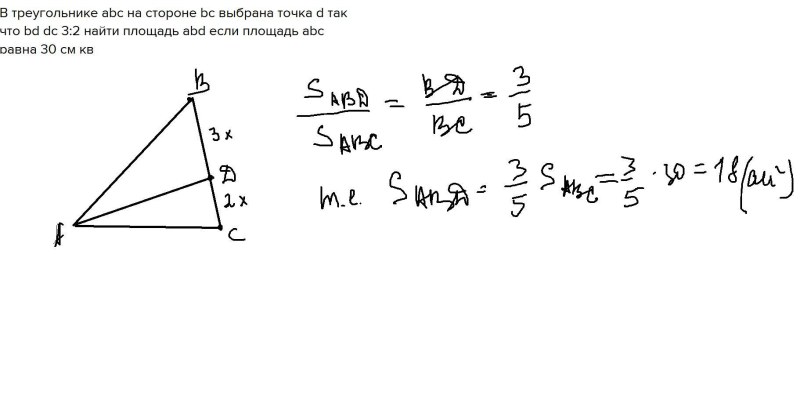 В треугольнике abc на стороне bc выбрана точка d так
что bd dc 3:2 найти площадь abd если площадь abc
равна 30 см кв
B
3x
D
2x
A
C
S_ABD / S_ABC = BD / BC = 3/5
т.е. S_ABD = 3/5 S_ABC = 3/5 · 30 = 18 (см²)